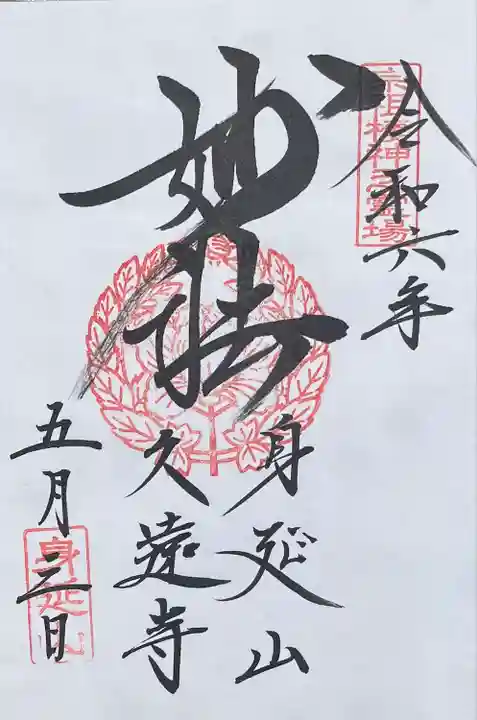 令和六年
妙法
身延山
久遠寺
五月三日
宗祖棲神之霊場
身延山